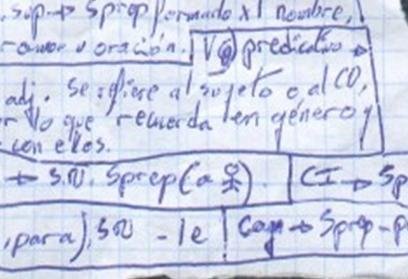 .sup → Sprep formado x1 nombre,
o oración. V @ predicativo →
adj. Se refiere al sujeto o al CD,
lo que concuerda en género y
con ellos.
→ SN. Sprep (a ). CI → Sp
, para), SN - le Cag → Sprep - p